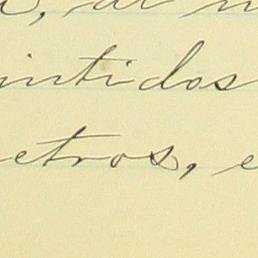 intidos
etros, e